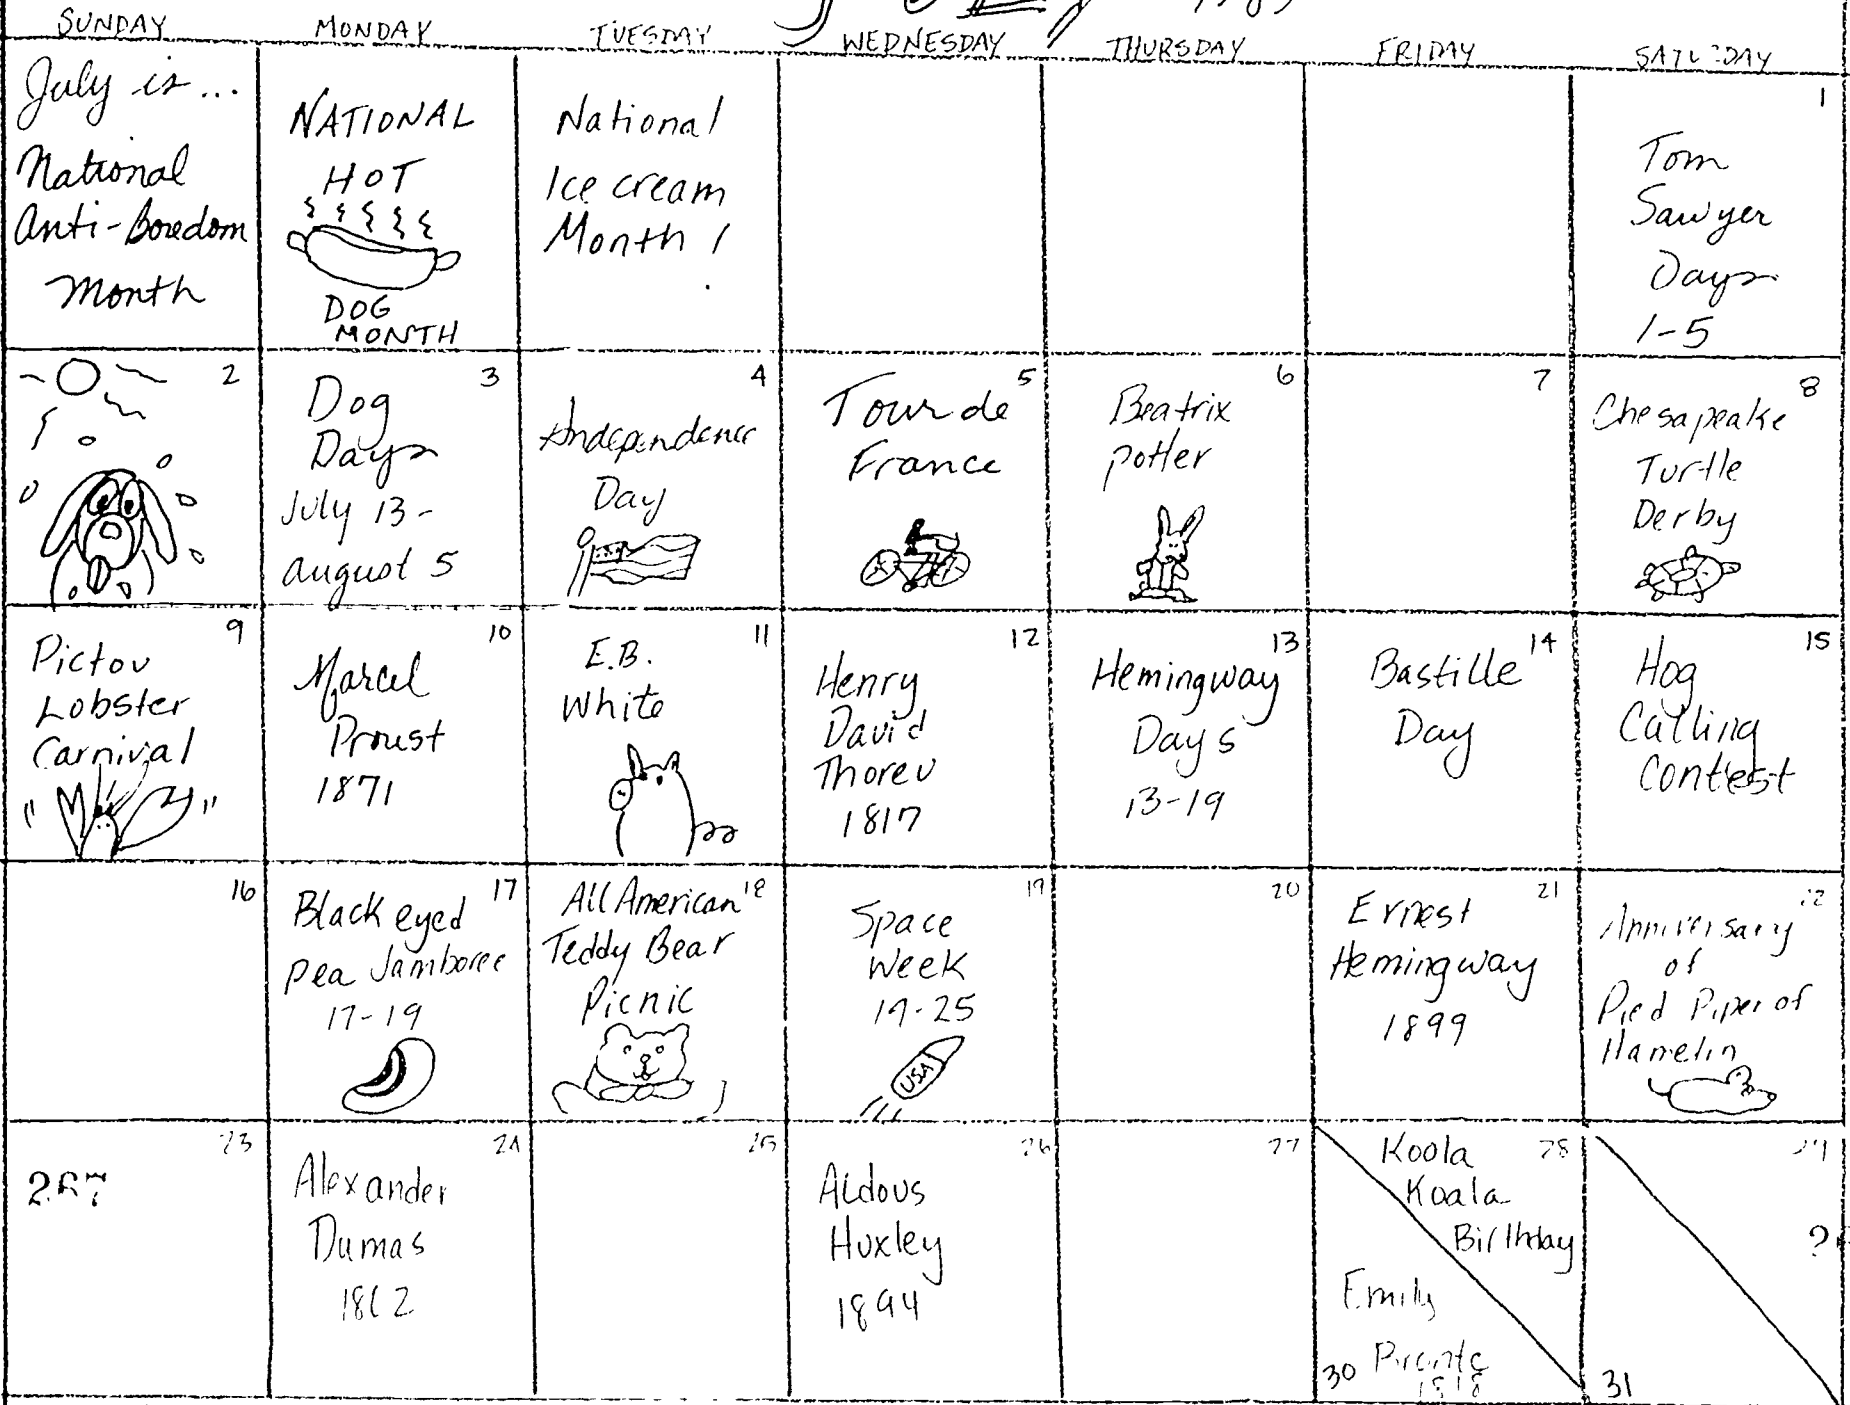 SUNDAY MONDAY TUESDAY WEDNESDAY THURSDAY FRIDAY SATURDAY
July is...
National
Anti-Boredom
Month
NATIONAL
HOT
DOG
MONTH
National
Ice cream
Month!
1
Tom
Sawyer
Days
1-5
2
3
Dog
Days
July 13-
august 5
4
Independence
Day
5
Tour de
France
6
Beatrix
potter
7
8
Chesapeake
Turtle
Derby
9
Pictou
Lobster
Carnival
10
Marcel
Proust
1871
11
E.B.
White
12
Henry
David
Thoreu
1817
13
Hemingway
Days
13-19
14
Bastille
Day
15
Hog
Calling
Contest
16
17
Black eyed
pea Jamboree
17-19
18
All American
Teddy Bear
Picnic
19
Space
Week
19-25
USA
20
21
Ernest
Hemingway
1899
22
Anniversary
of
Pied Piper of
Hamelin
23
267
24
Alexander
Dumas
25
26
Aldous
Huxley
1894
27
28
Koola
Koala
Birthday
Emily
30
1818
29
31